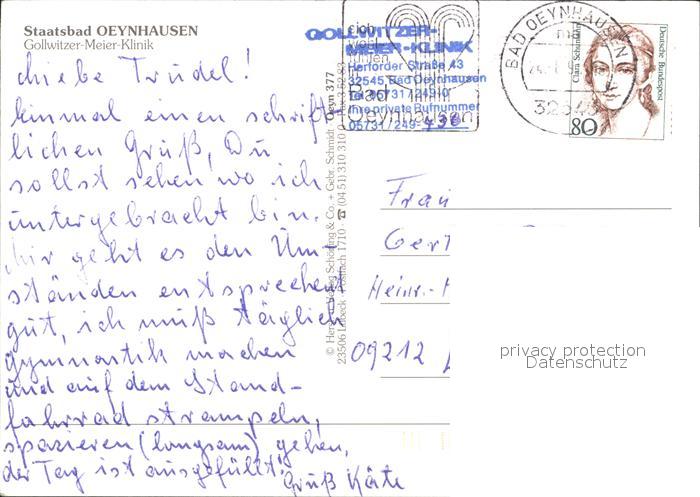 Staatsbad OEYNHAUSEN
Gollwitzer-Meier-Klinik
Liebe Trudel!
Einmal einen schrift
lichen Gruß, Du
sollst sehen wo ich
untergebracht bin.
Mir geht es den Um-
ständen entsprechend
gut, ich muß täglich
Gymnastik machen
und auf dem Stand-
fahrrad strampeln,
spazieren (langsam) gehen,
der Tag ist ausgefüllt.
Gruß Käte
© Herst. u. Verlag Schöning & Co. + Gebr. Schmidt · Oeyn 377
23506 Lübeck · Postfach 1710 · ☎ (04 51) 310 310
GOLLWITZER-
MEIER-KLINIK
Herforder Straße 43
32545 Bad Oeynhausen
Tel. 05731/24910
Ihre private Rufnummer
05731/249-436
sich
wohl
fühlen
Bad
Oeynhausen
BAD OEYNHAUSEN
32545
Clara Schumann
Deutsche Bundespost
80
Frau
Gert
Heinr.-
09212
privacy protection
Datenschutz